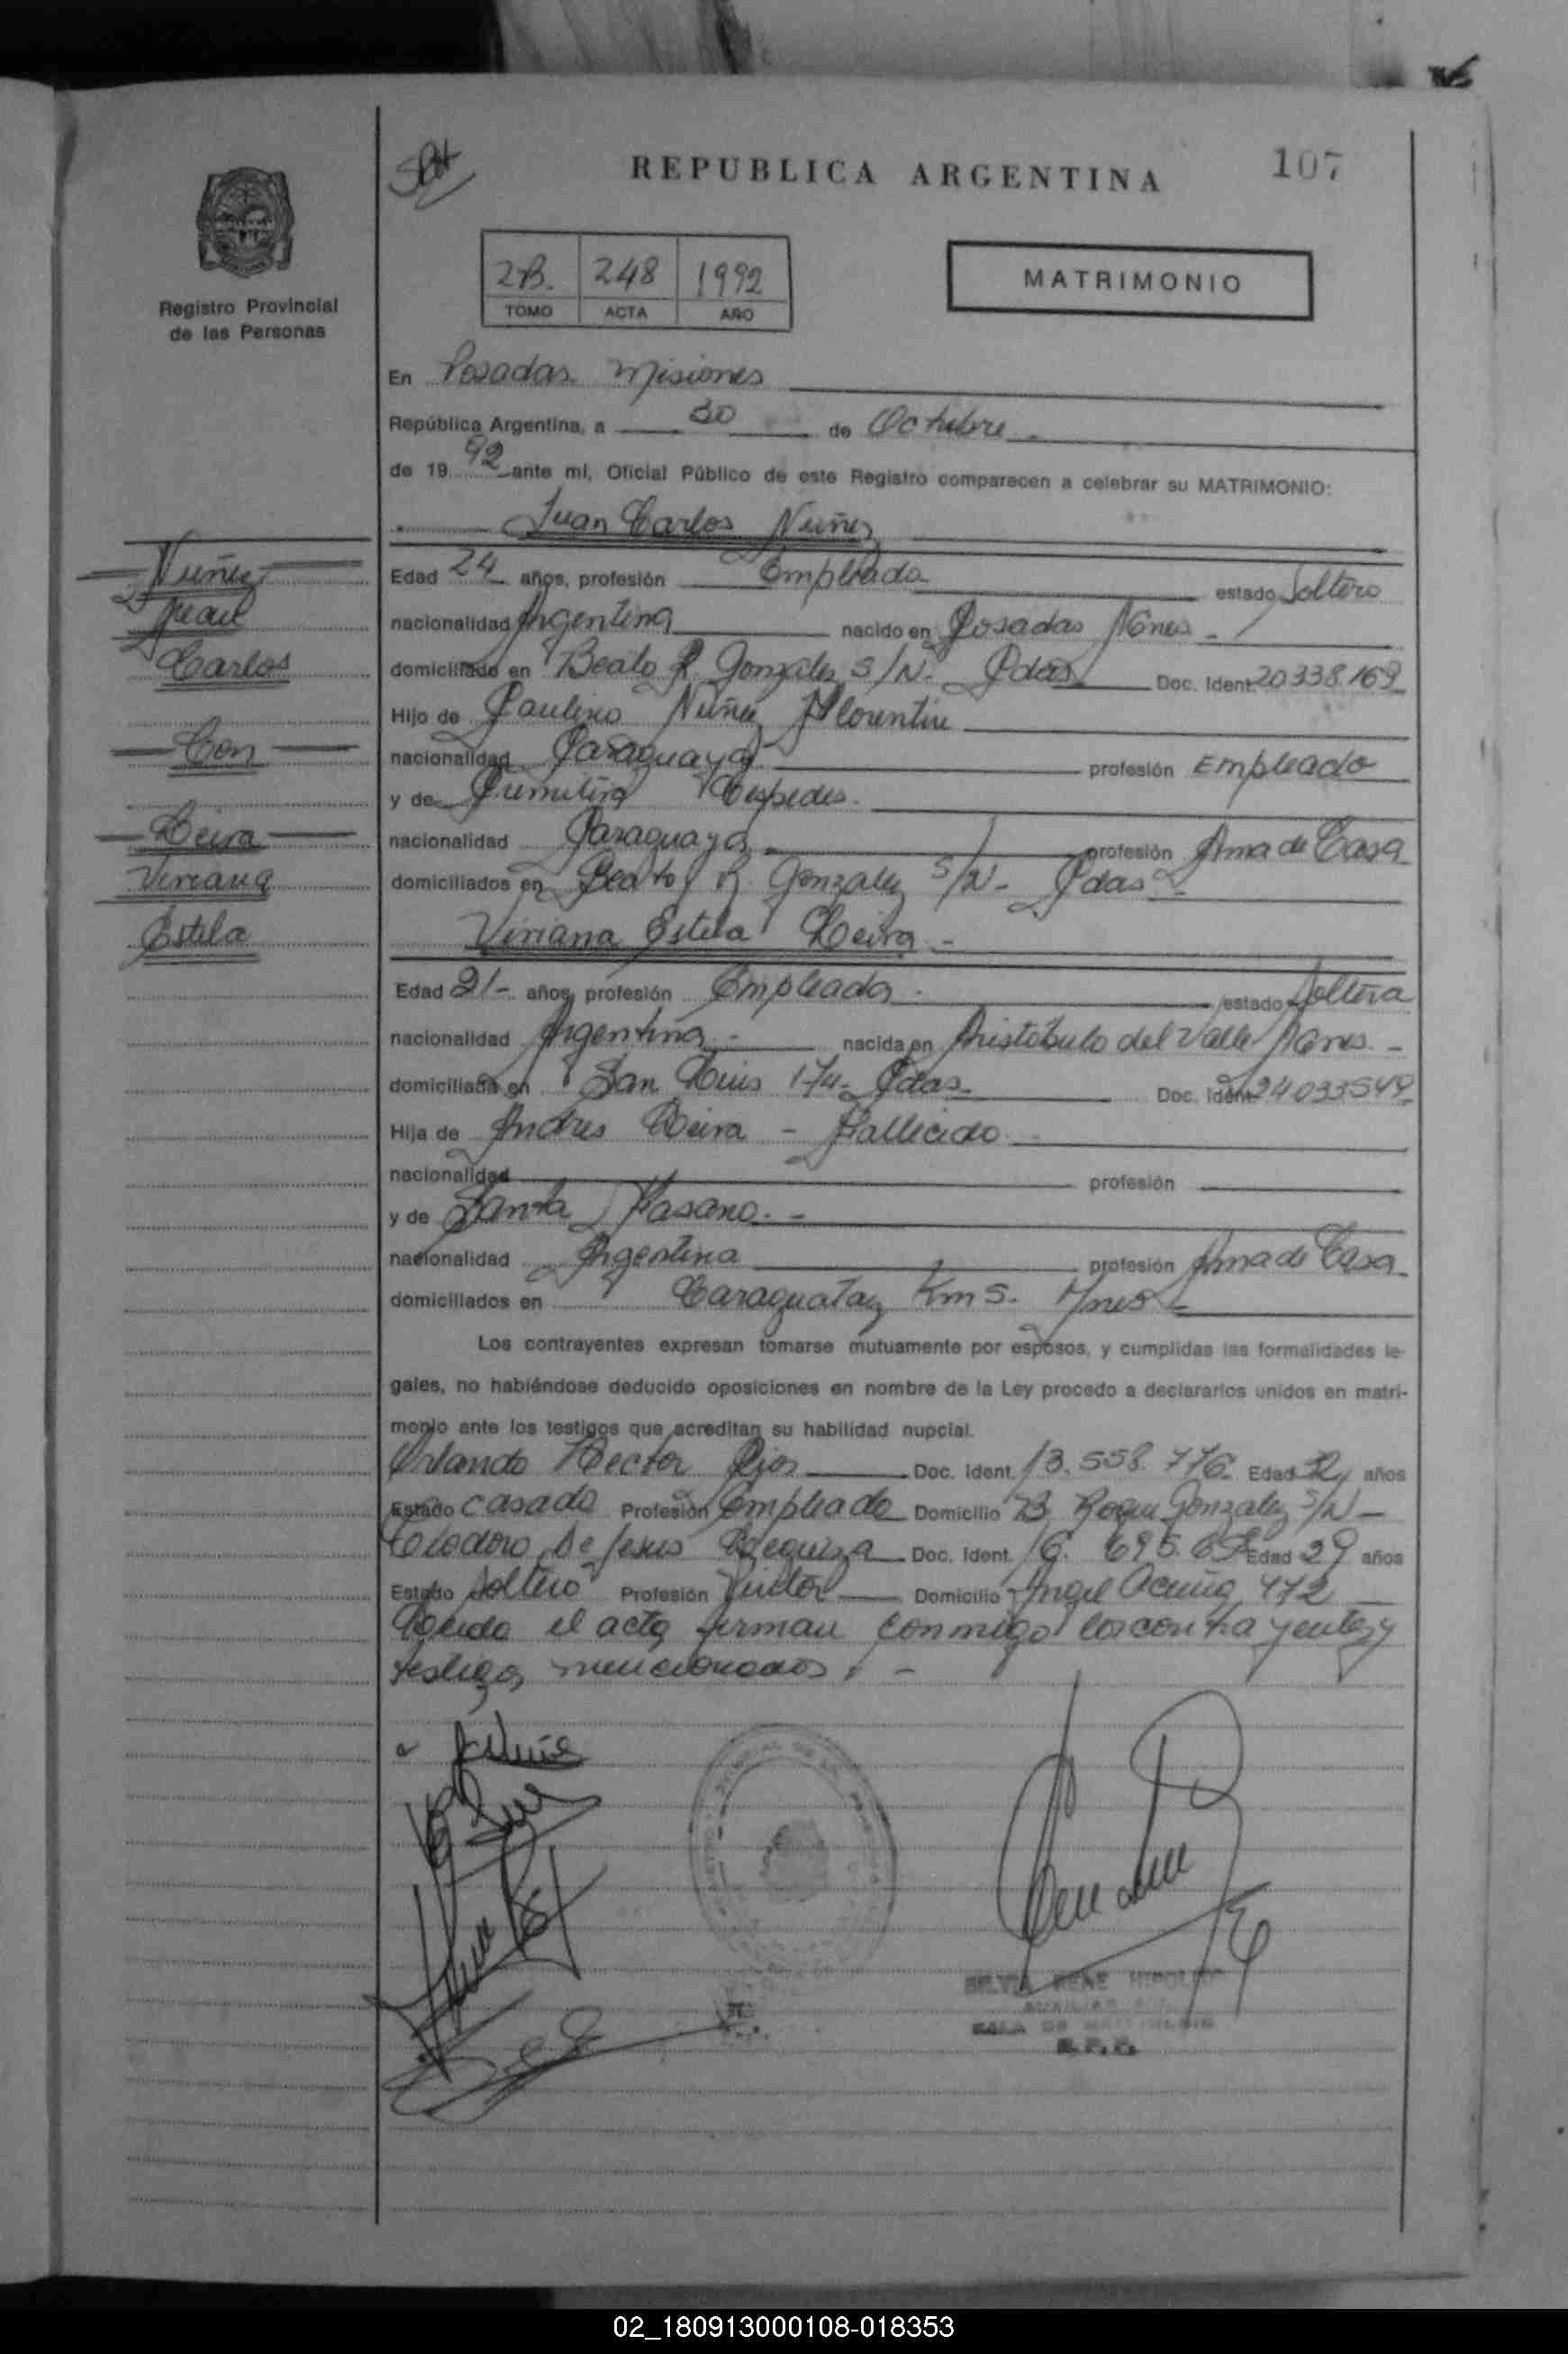 REPUBLICA ARGENTINA
107
Registro Provincial
de las Personas
2B. 248 1992
TOMO ACTA AÑO
MATRIMONIO
En Posadas Misiones
República Argentina, a 30 de Octubre
de 19 92 ante mí, Oficial Público de este Registro comparecen a celebrar su MATRIMONIO:
Juan Carlos Nuñez
Nuñez
Juan
Carlos
Con
Leiva
Viviana
Estela
Edad 24 años, profesión Empleado estado Soltero
nacionalidad Argentina nacido en Posadas Mnes -
domiciliado en Beato R. Gonzalez S/N. Pdas Doc. Ident. 20338169
Hijo de Paulino Nuñez Florentin
nacionalidad Paraguaya profesión Empleado
y de Primitiva Cespedes.
nacionalidad Paraguaya profesión Ama de Casa
domiciliados en Beato R. Gonzalez S/N- Pdas -
Viviana Estela Leiva -
Edad 21- años, profesión Empleada estado Soltera
nacionalidad Argentina - nacida en Aristobulo del Valle Mnes. -
domiciliada en San Luis 174- Pdas. Doc. Ident. 24033549
Hija de Andres Leiva - Fallecido.
nacionalidad profesión
y de Santa -
nacionalidad Argentina profesión Ama de Casa
domiciliados en Caraguatay Km 5. Mnes
Los contrayentes expresan tomarse mutuamente por esposos, y cumplidas las formalidades le-
gales, no habiéndose deducido oposiciones en nombre de la Ley procedo a declararlos unidos en matri-
monio ante los testigos que acreditan su habilidad nupcial.
Orlando Hector Rios Doc. Ident. 13.558.776 Edad 32 años
Estado casado Profesión Empleado Domicilio B Roque Gonzalez S/N -
Teodoro De Jesus Doc. Ident. 16. 695. Edad 29 años
Estado Soltero Profesión Pintor Domicilio Angel Acuña 472
Leida el acta firman conmigo los contrayentes y
testigos mencionados. -
SALA DE MATRIMONIO
R.P.P.
02_180913000108-018353